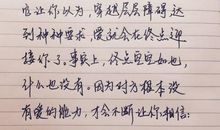 它让你以为，穿越层层障碍达
到种种要求，爱就会在终点迎
接你了。事实上，终点空空如也，
什么也没有。因为对方根本没
有爱的能力，才会不断让你相信：